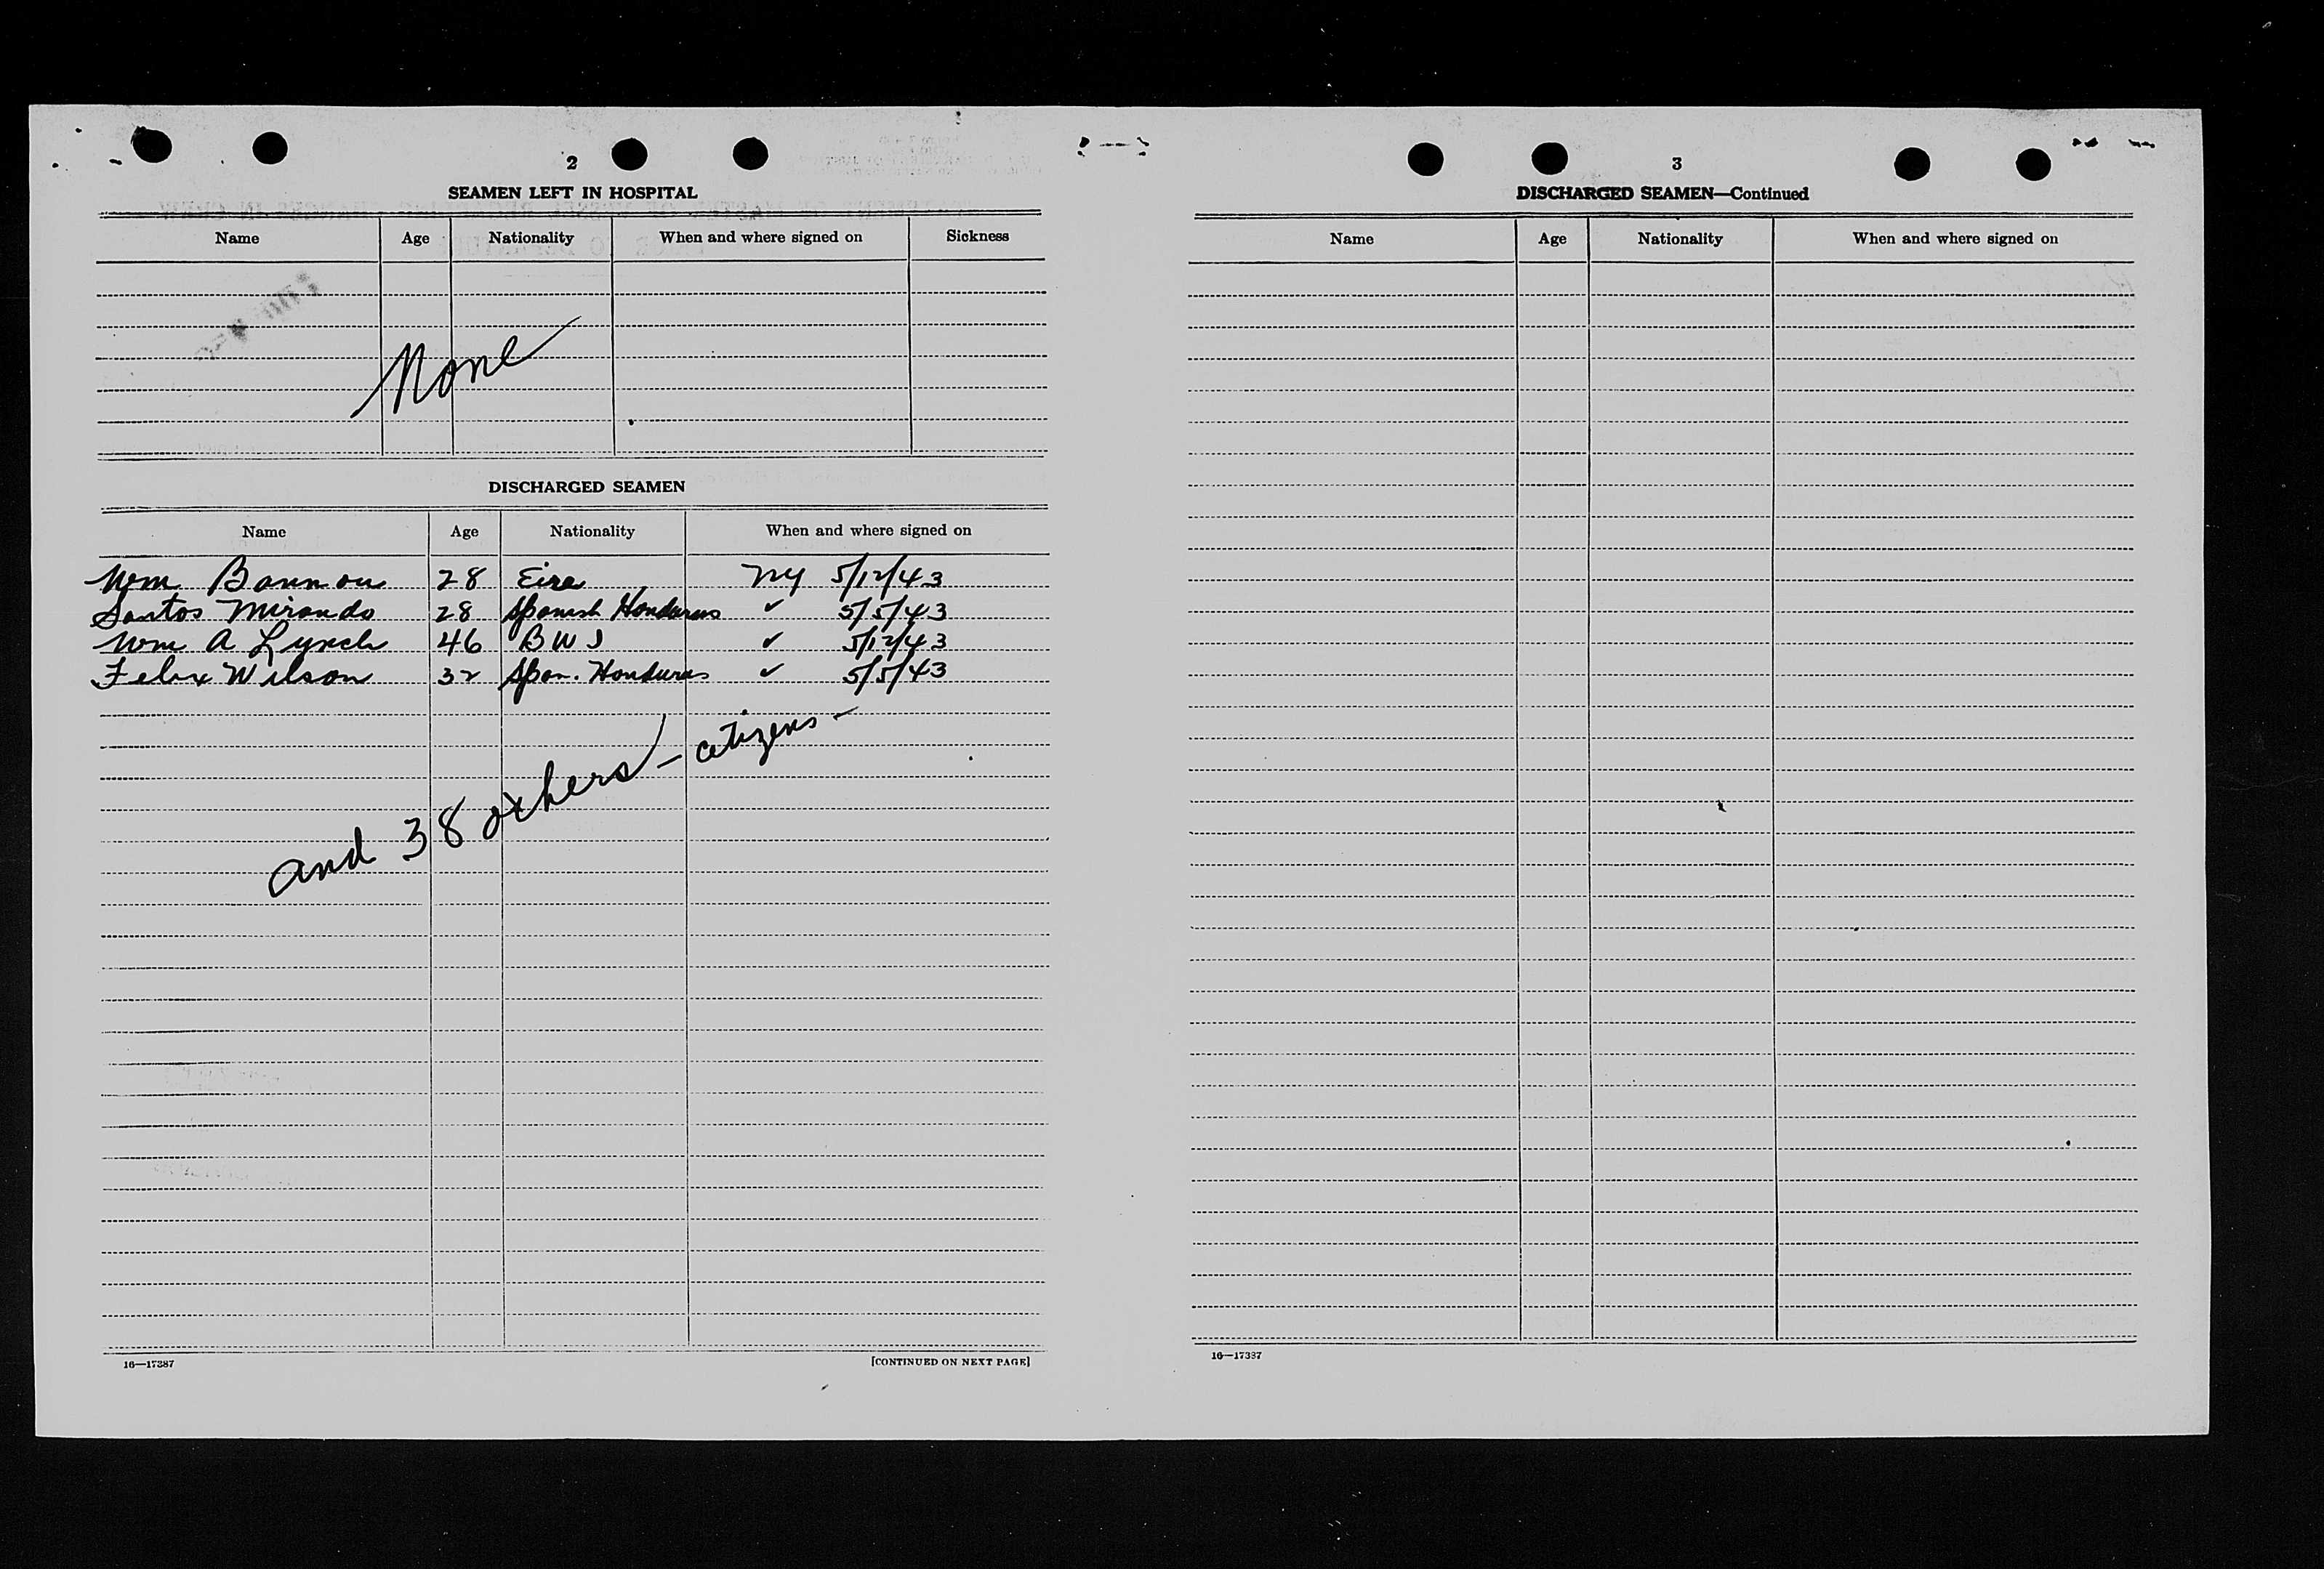 2
SEAMEN LEFT IN HOSPITAL
Name Age Nationality When and where signed on Sickness
None
DISCHARGED SEAMEN
Name Age Nationality When and where signed on
Wm Bannon 28 Eire NY 5/12/43
Santos Mirando 28 Spanish Honduras ✓ 5/5/43
Wm A Lynch 46 BWI ✓ 5/12/43
Felix Wilson 32 Span. Honduras ✓ 5/5/43
and 38 others - citizens -
16—17387
[CONTINUED ON NEXT PAGE]
3
DISCHARGED SEAMEN—Continued
Name Age Nationality When and where signed on
16—17387